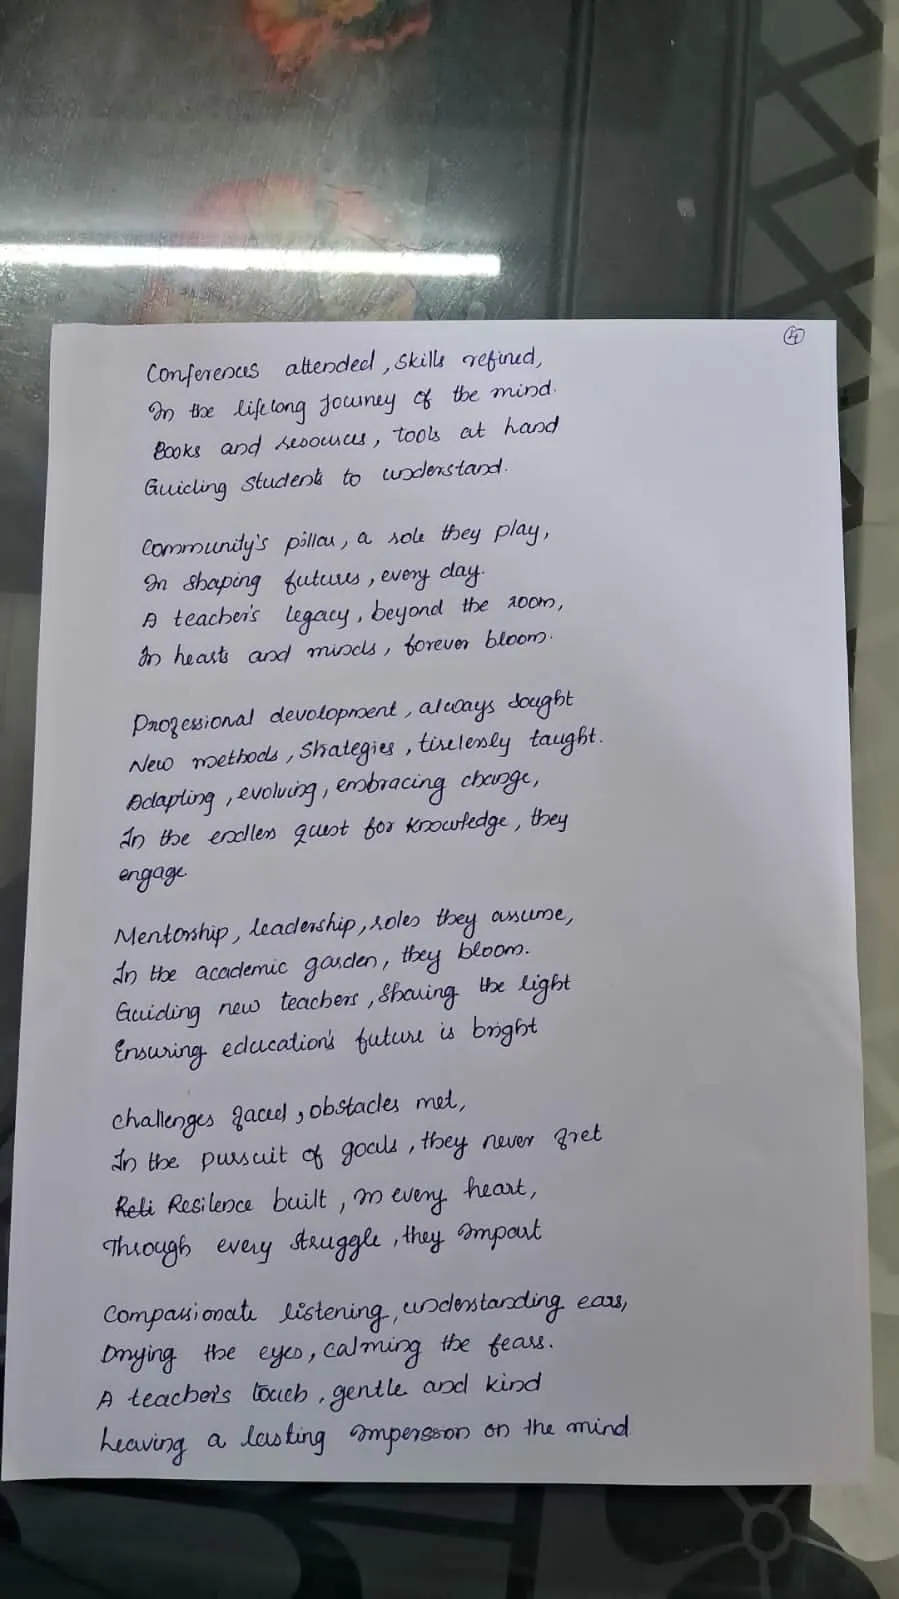 4
Conferences attended, skills refined,
In the lifelong journey of the mind.
Books and resources, tools at hand
Guiding students to understand.
Community's pillar, a role they play,
In shaping futures, every day.
A teacher's legacy, beyond the room,
In hearts and minds, forever bloom.
Professional devolopment, always sought
New methods, Strategies, tirelessly taught.
Adapting, evolving, embracing change,
In the endless quest for knowledge, they
engage
Mentorship, leadership, roles they assume,
In the academic garden, they bloom.
Guiding new teachers, Sharing the light
Ensuring education's future is bright
Challenges faced, obstacles met,
In the pursuit of goals, they never fret
Reli Resilence built, in every heart,
Through every struggle, they impart
Compassionate listening, understanding ears,
Drying the eyes, calming the fears.
A teacher's touch, gentle and kind
Leaving a lasting imperssion on the mind